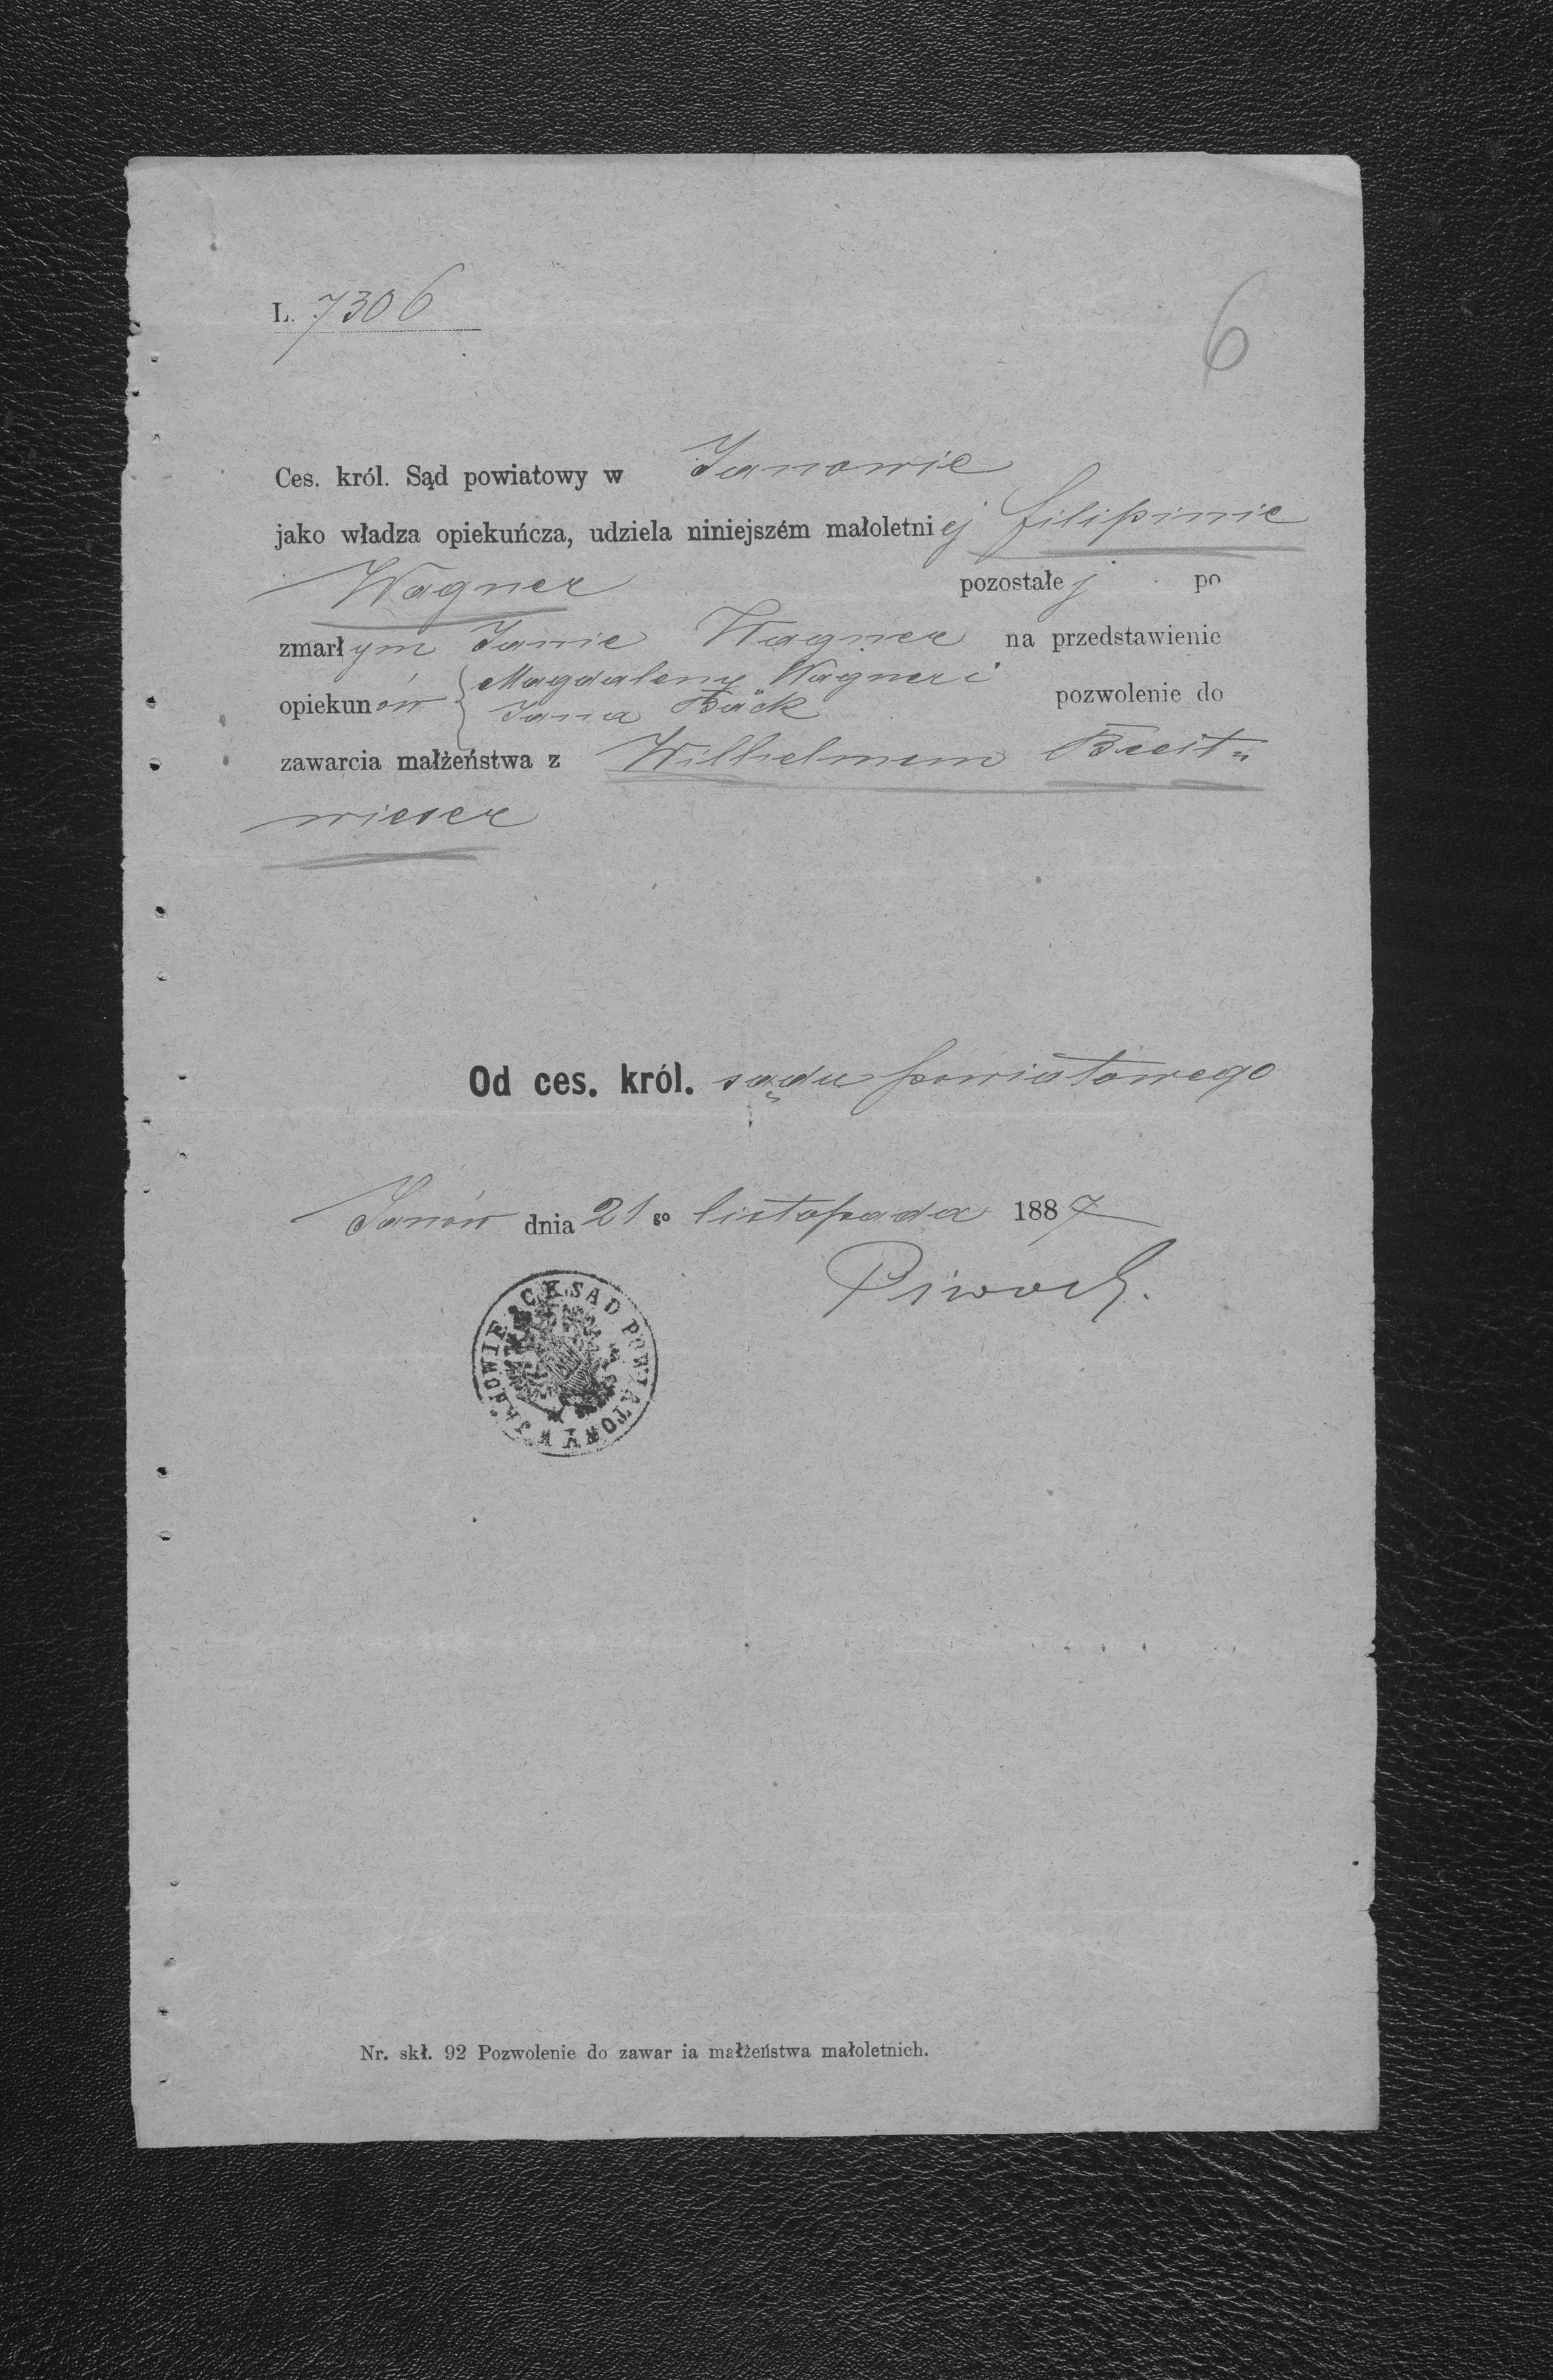 L. 7306
6
Ces. król. Sąd powiatowy w Janowie
jako władza opiekuńcza, udziela niniejszém małoletniej filipinie
Wagner pozostałej po
zmarłym Janie Wagner na przedstawienie
opiekunów { Magdaleny Wagner i
Jana Bäck pozwolenie do
zawarcia małżeństwa z Wilhelmem Breit„
wieser
Od ces. król. sądu powiatowego
Janów dnia 21go listopada 1887
Piwock.
C. K. SĄD POWIATOWY W JANOWIE
Nr. skł. 92 Pozwolenie do zawar ia małżeństwa małoletnich.